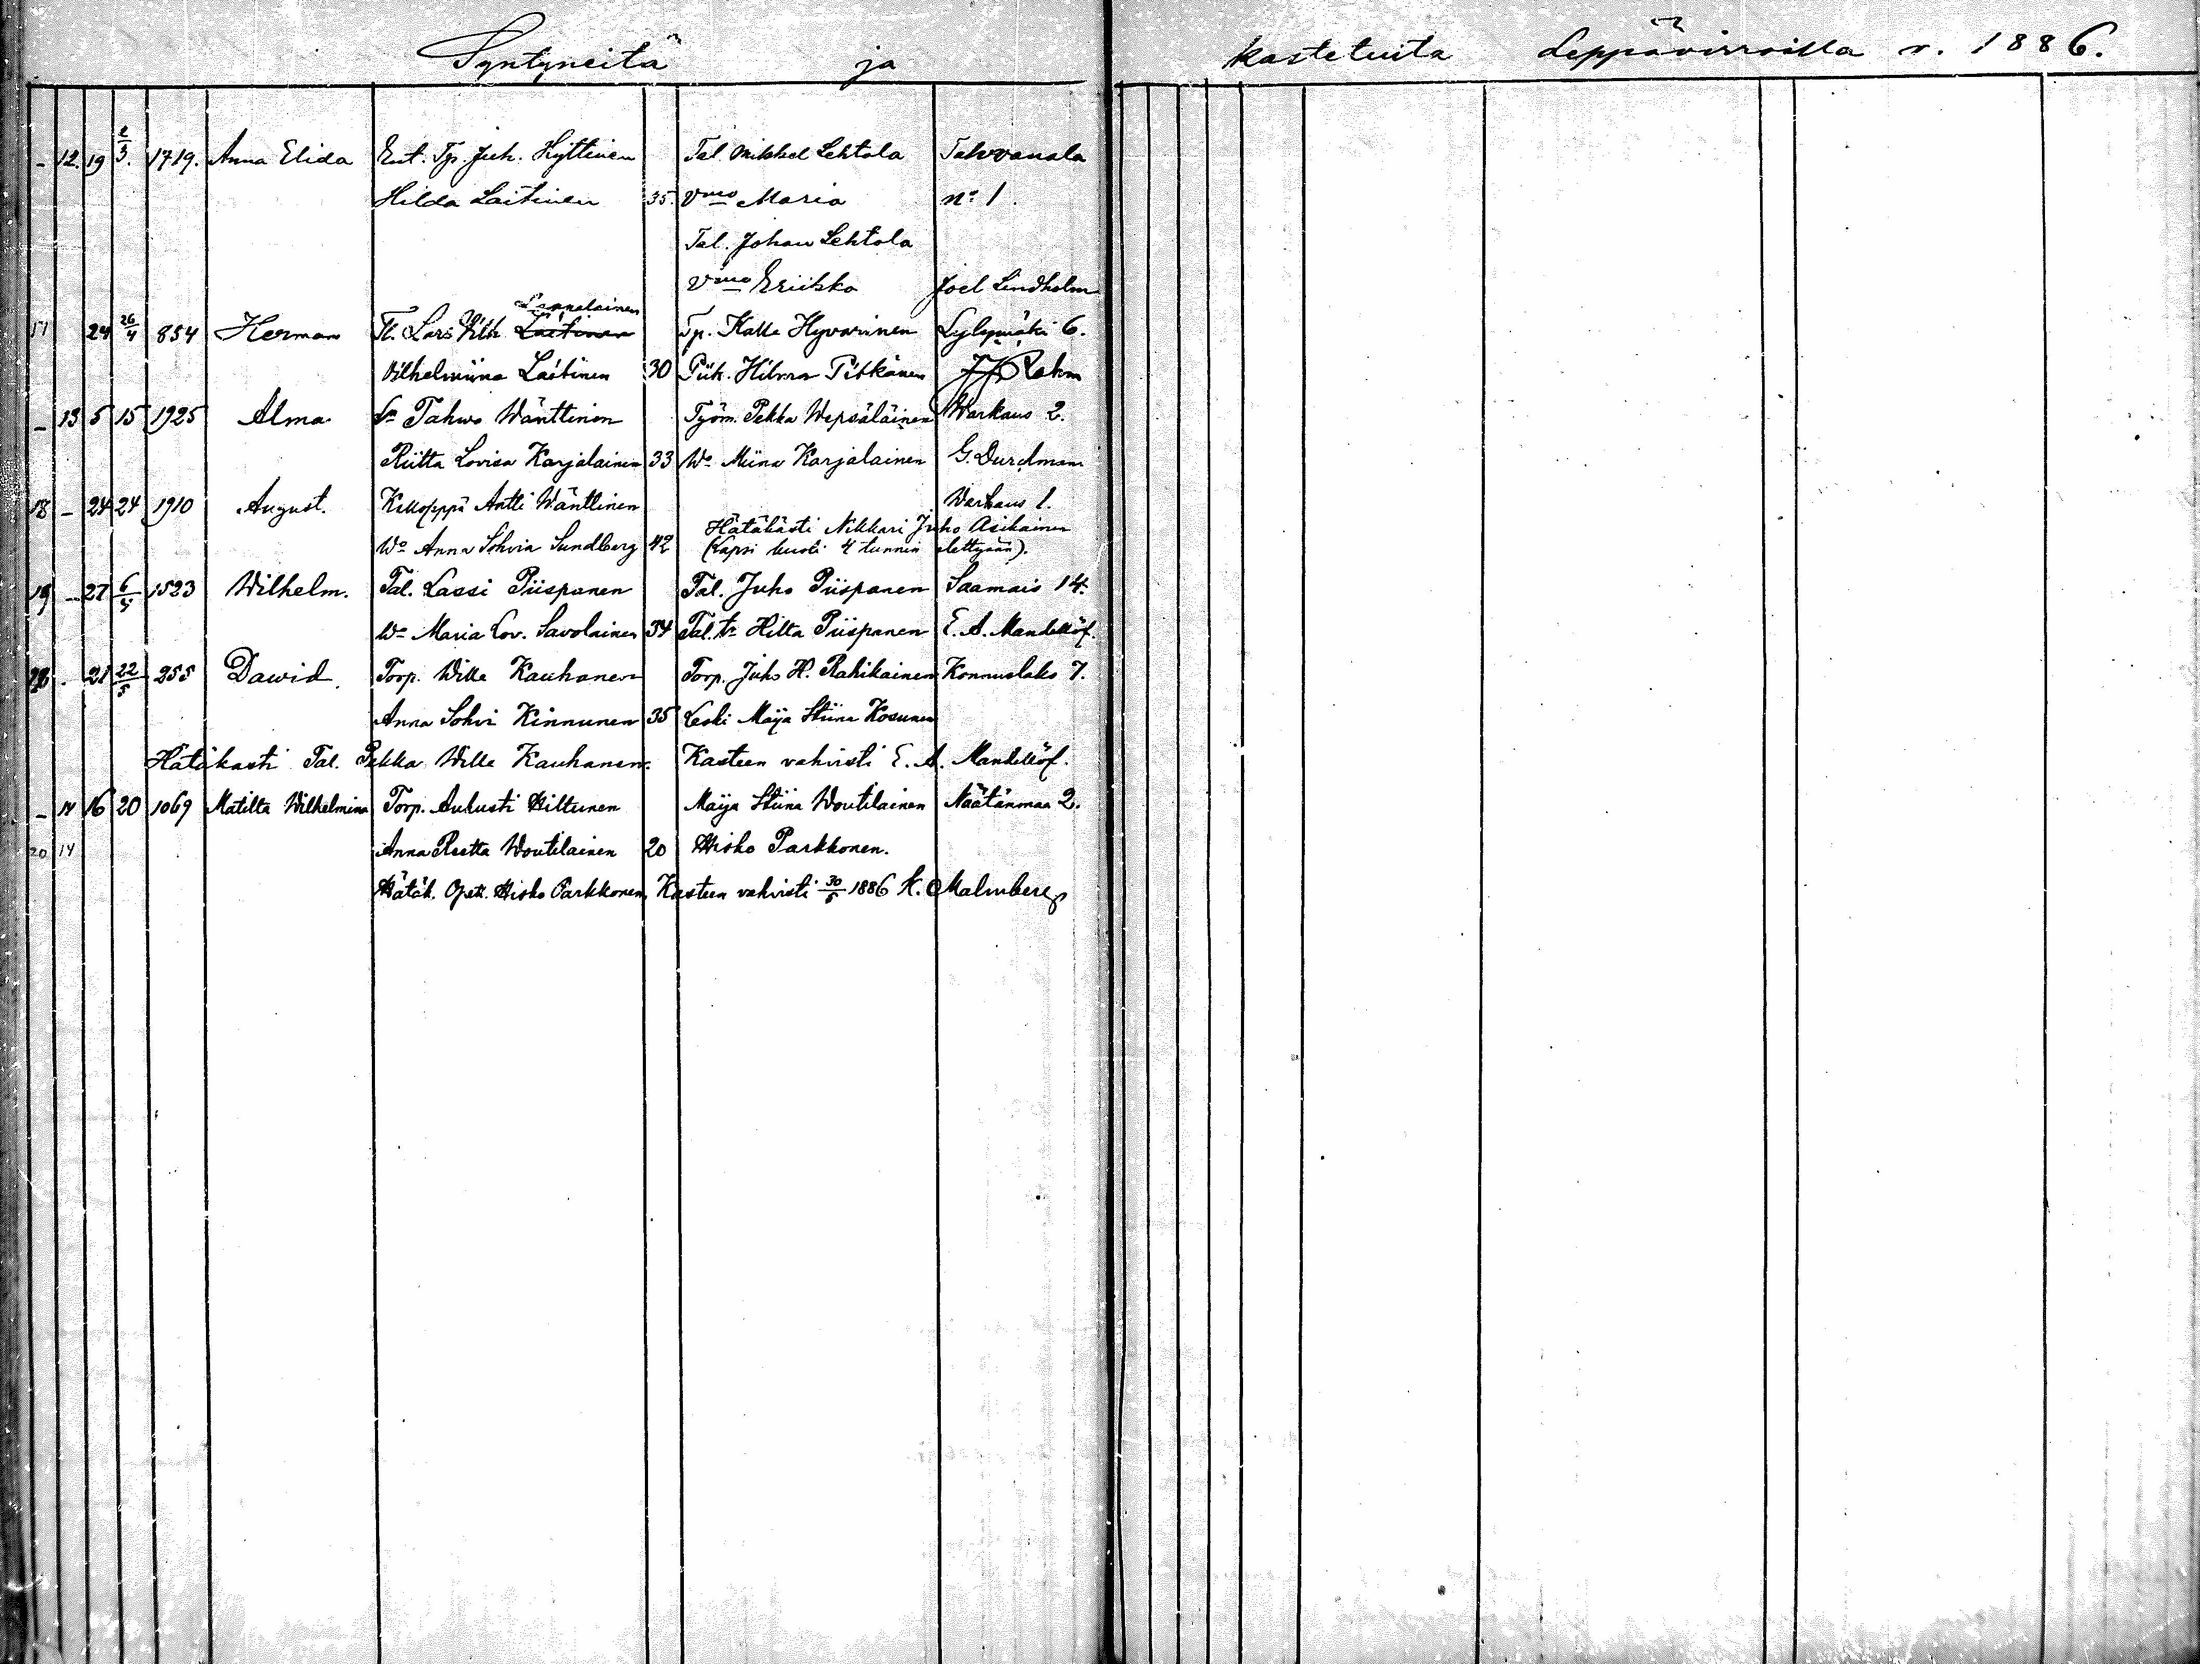 Syntyneitä ja kastetuita Leppävirroilla v. 1886.
- 12. 19 2/3. 1719. Anna Elida Ent. Tp. Juh. Hyttinen Tal. Mikkel Lehtola Tahvanala
Hilda Laitinen 35. Vmo Maria No 1.
Tal. Johan Lehtola
Vmo Eriikka Joel Lindholm
17 24 26/4 854 Herman Tl. Lars Vilh. Laitinen Tp. Kalle Hyvarinen Lylymäki 6.
Vilhelmiina Laitinen 30 Piik. Hilma Pitkänen
- 13 5 15 1925 Alma Tahvo Wänttinen Työm. Pekka Wepsäläinen Warkaus 2.
Riitta Lovisa Karjalainen 33 Wo Miina Karjalainen G. Durchman
18 - 24 24 1910 August. Antti Wänttinen Warkaus 1.
Hätäkasti Nikkari Juho Asikainen
Wo Anna Sohvia Sundberg 42 (Lapsi kuoli 4 tunnin elettyään).
19 - 27 6/5 1523 Wilhelm. Tal. Lassi Piispanen Tal. Juho Piispanen Saamais 14.
Wo Maria Lov. Savolainen 34 Tal. tr Hilta Piispanen E. A. Mandellöf.
- 21 22/5 255 Dawid. Torp. Wille Kauhanen Torp. Juho H. Rahikainen Konnuslaks 7.
Anna Sohvi Kinnunen 35 Leski Maija Stiina Kosunen
Hätäkasti Tal. Pekka Wille Kauhanen. Kasteen vahvisti E. A. Mandellöf.
- 14 16 20 1069 Matilta Wilhelmina Torp. Aukusti Hiltunen Maija Stiina Woutilainen Näätänmaa 2.
20 14 Anna Reetta Woutilainen 20 Hisko Parkkonen.
Hätäk. Opett. Hisko Parkkonen, Kasteen vahvisti 30/5 1886 K. Malmberg